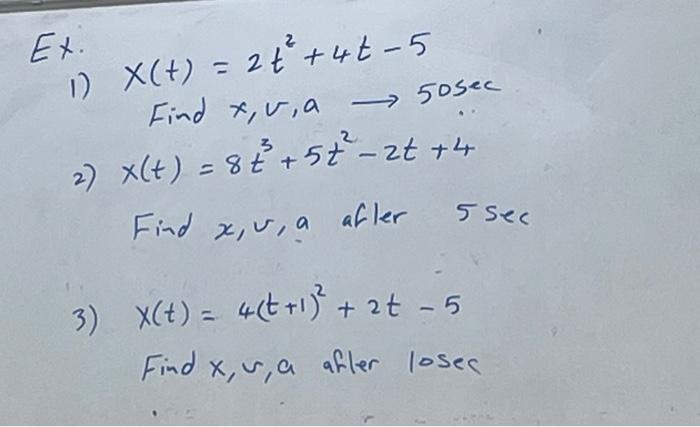 Ex.
1) x(t) = 2t² + 4t - 5
Find x, v, a → 50sec
2) x(t) = 8t³ + 5t² - 2t + 4
Find x, v, a after 5 sec
3) x(t) = 4(t+1)² + 2t - 5
Find x, v, a after 10sec